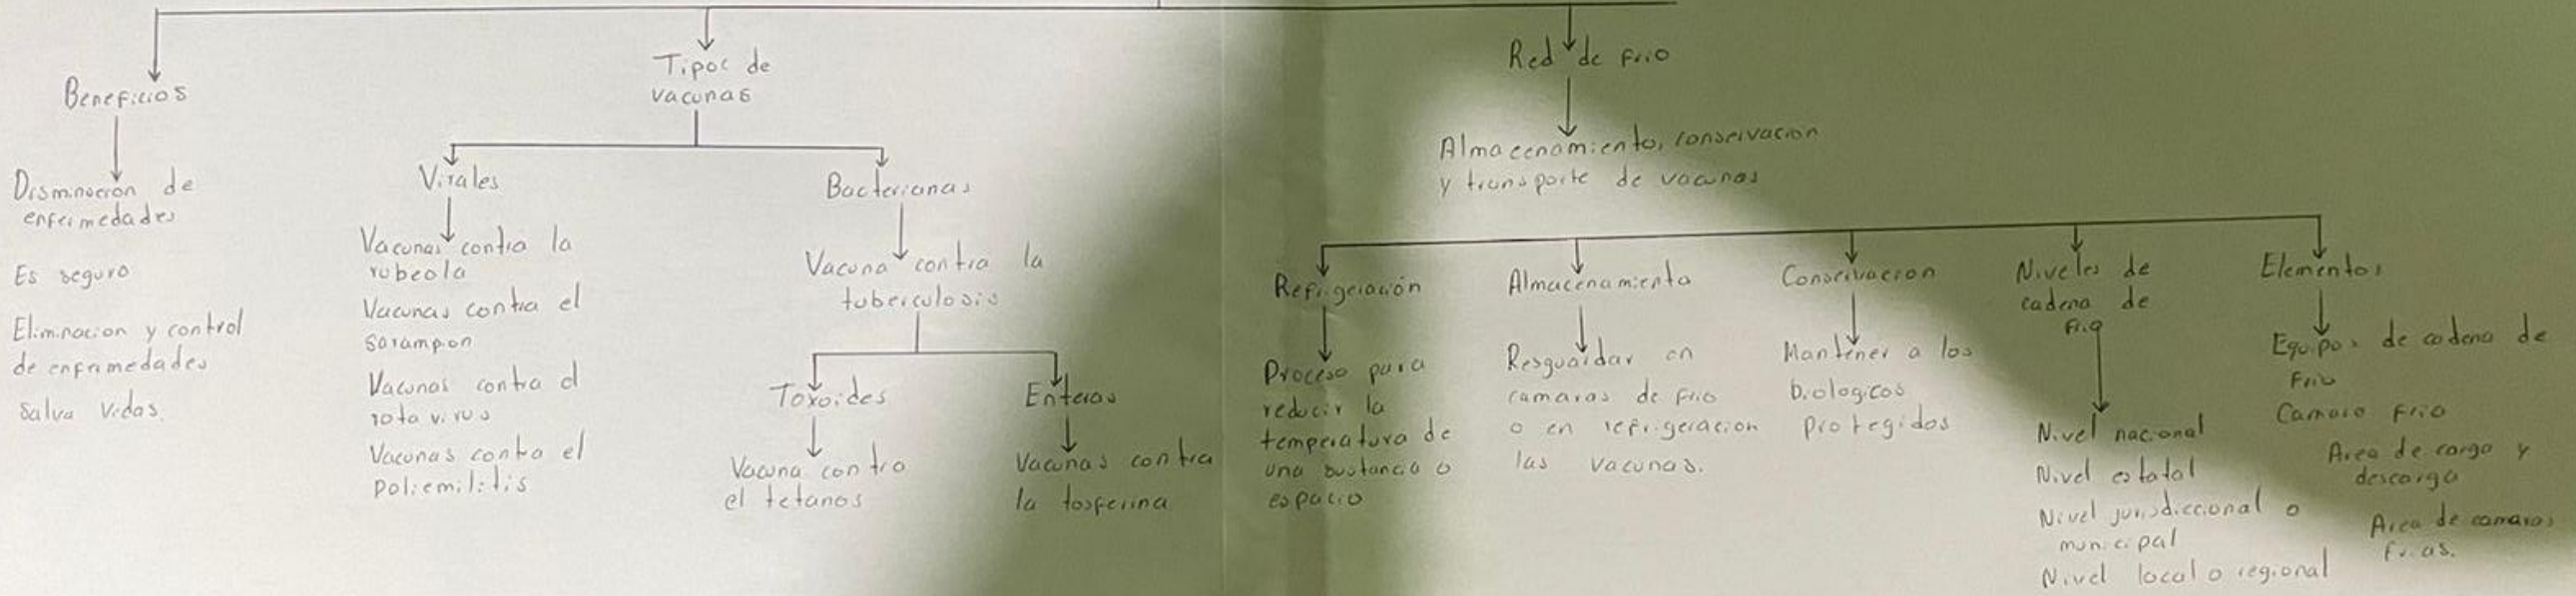 Beneficios
Disminucion de
enfermedades
Es seguro
Eliminacion y control
de enfrmedades
Salva vidas.
Tipos de
vacunas
Virales
Vacunas contra la
rubeola
Vacunas contra el
sarampon
Vacunas contra el
rota virus
Vacunas contra el
poliemilitis
Bacterianas
Vacuna contra la
tuberculosis
Toxoides
Vacuna contra
el tetanos
Enteras
Vacunas contra
la tosferina
Red de frio
Almacenamiento, conservacion
y transporte de vacunas
Refrigeración
Proceso para
reducir la
temperatura de
una sustancia o
espacio
Almacenamiento
Resguardar en
camaras de frio
o en refrigeracion
las vacunas.
Conservacion
Mantener a los
biologicos
protegidos
Niveles de
cadena de
frio
Nivel nacional
Nivel estatal
Nivel jurisdiccional o
municipal
Nivel local o regional
Elementos
Equipos de cadena de
frio
Camara fria
Area de carga y
descarga
Area de camaras
frias.